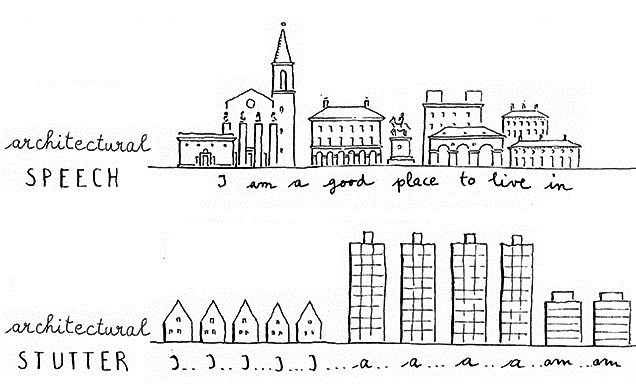 architectural
SPEECH
I am a good place to live in
architectural
STUTTER
I.. I.. I... I... I .... a... a ... a ... a ... am ... am